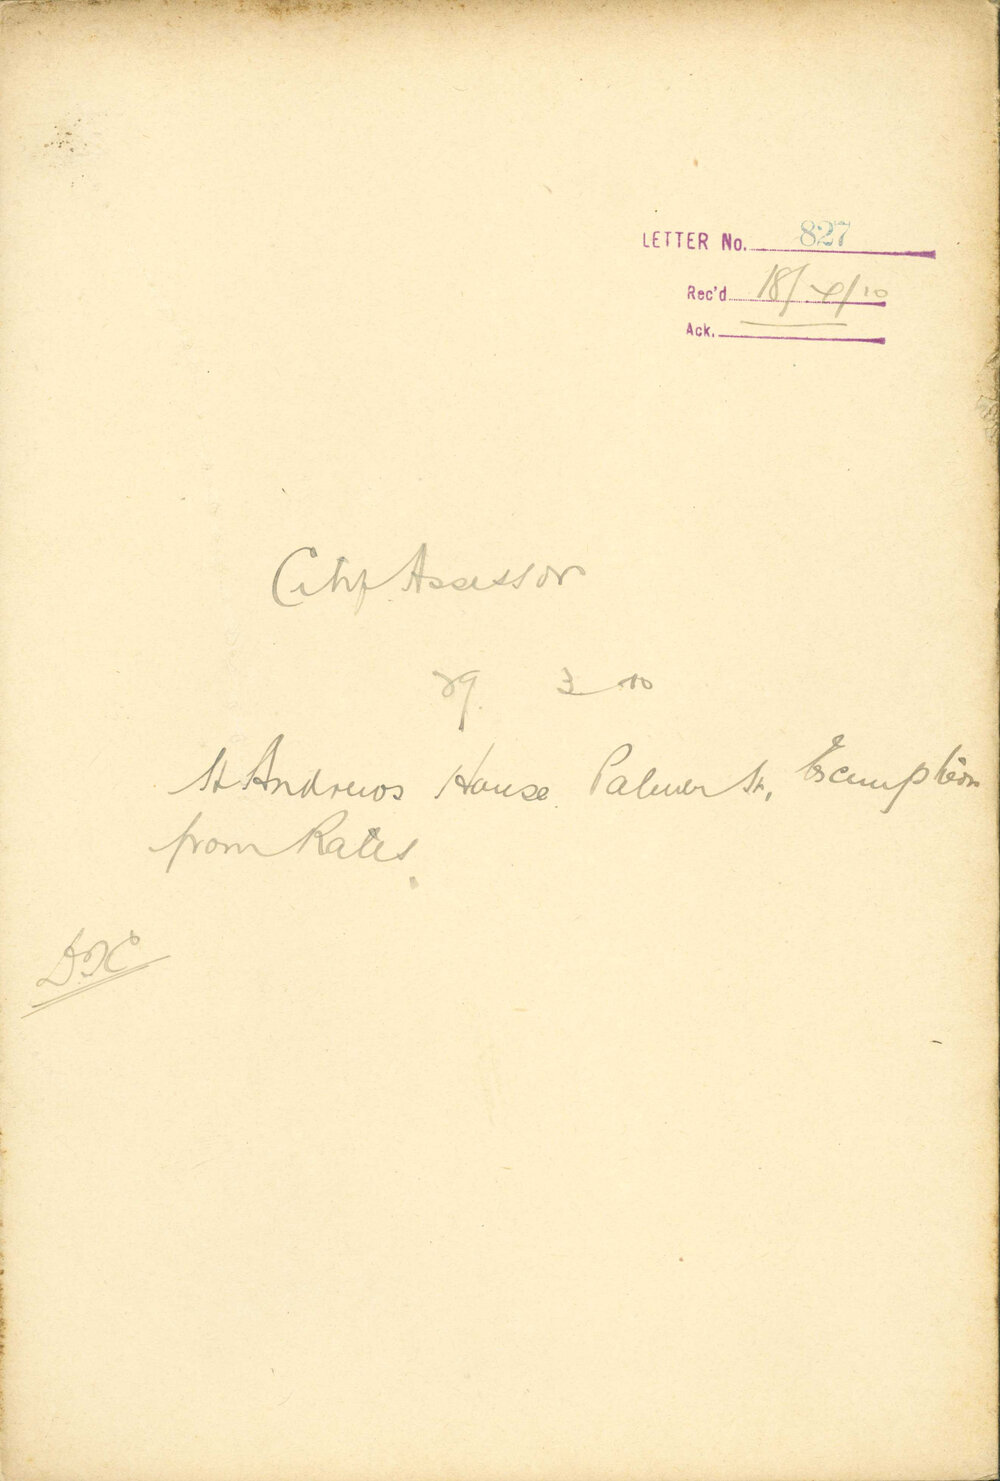 LETTER No. 827
Rec'd 18/4/10
Ack.
City Assessor
29. 3 10
St Andrews House. Palmer St, Exemption
from Rates.